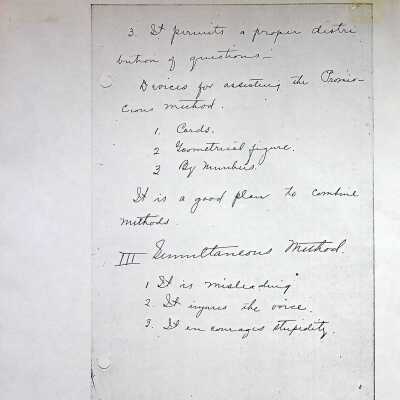 3. It permits a proper distri
bution of questions—
Devices for assisting the Promis-
cious method.
1. Cards.
2 Geometrical figure.
3 By Numbers.
It is a good plan to combine
methods.
III Simultaneous Method.
1 It is misleading
2. It injures the voice.
3. It encourages stupidity.